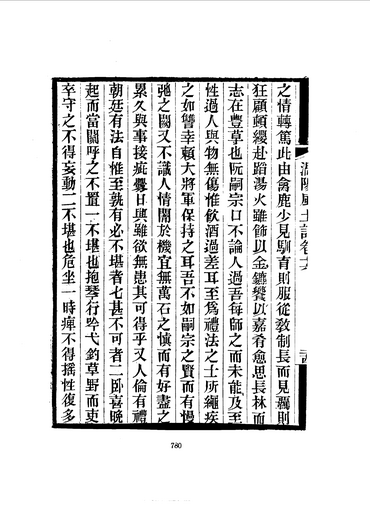 之情轉篤此由禽鹿少見馴育則服從敎制長而見羈則
狂顧頓纓赴蹈湯火雖飾以金鑣饗以嘉肴愈思長林而
志在豐草也阮嗣宗口不論人過吾每師之而未能及至
性過人與物無傷惟飲酒過差耳至爲禮法之士所繩疾
之如讐幸賴大將軍保持之耳吾不如嗣宗之賢而有慢
弛之闕又不識人情闇於機宜無萬石之愼而有好盡之
累久與事接疵釁日興雖欲無患其可得乎又人倫有禮
朝廷有法自惟至孰有必不堪者七甚不可者二卧喜晚
起而當關呼之不置一不堪也抱琴行吟弋釣草野而吏
卒守之不得妄動二不堪也危坐一時痺不得搖性復多
風土記卷十六
780